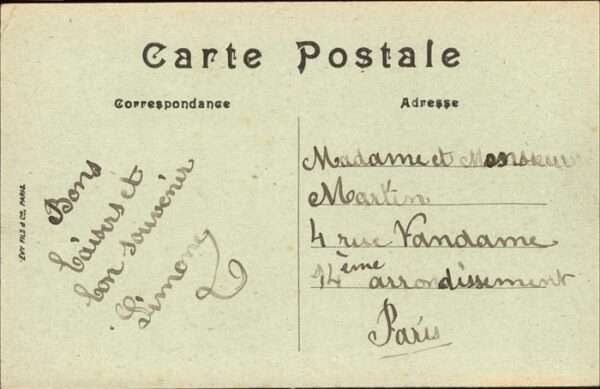 Carte Postale
Correspondance
Adresse
Bons
baisers et
bon souvenir
Simone
Madame et Monsieur
Martin
4 rue Vandame
14ème arrondissement
Paris
LEVY FILS & Cie, PARIS